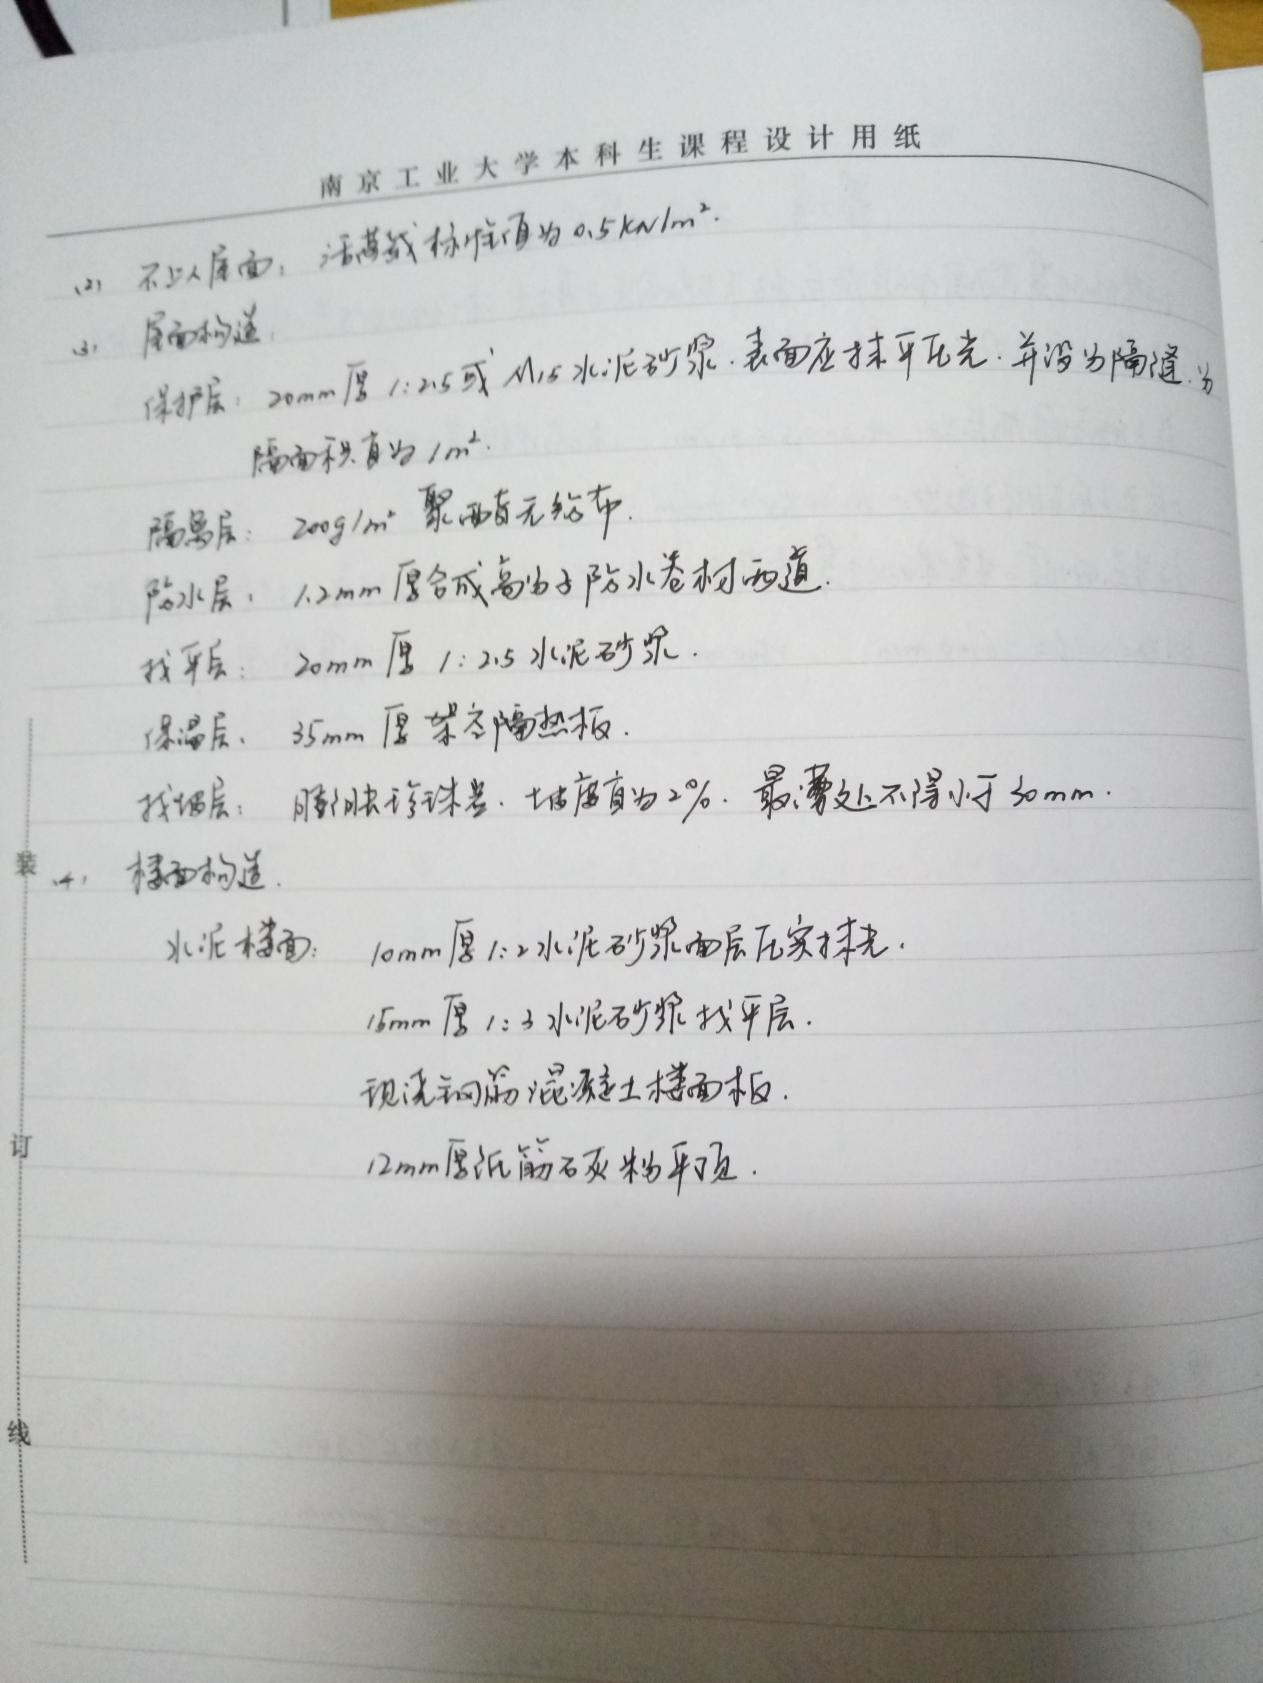 南京工业大学本科生课程设计用纸
(2) 不上人屋面：活荷载标准值为0.5kN/m².
(3) 屋面构造：
保护层：20mm厚1:2.5或M15水泥砂浆.表面应抹平压光.并设分隔缝.分
隔面积宜为1m².
隔离层：200g/m² 聚酯无纺布.
防水层：1.2mm厚合成高分子防水卷材两道.
找平层：20mm厚 1:2.5水泥砂浆.
保温层：35mm厚架空隔热板.
找坡层：膨胀珍珠岩.坡度宜为2%.最薄处不得小于30mm.
(4) 楼面构造.
水泥楼面：10mm厚1:2水泥砂浆面层压实抹光.
15mm厚1:3水泥砂浆找平层.
现浇钢筋混凝土楼面板.
12mm厚纸筋石灰粉平顶.
装
订
线